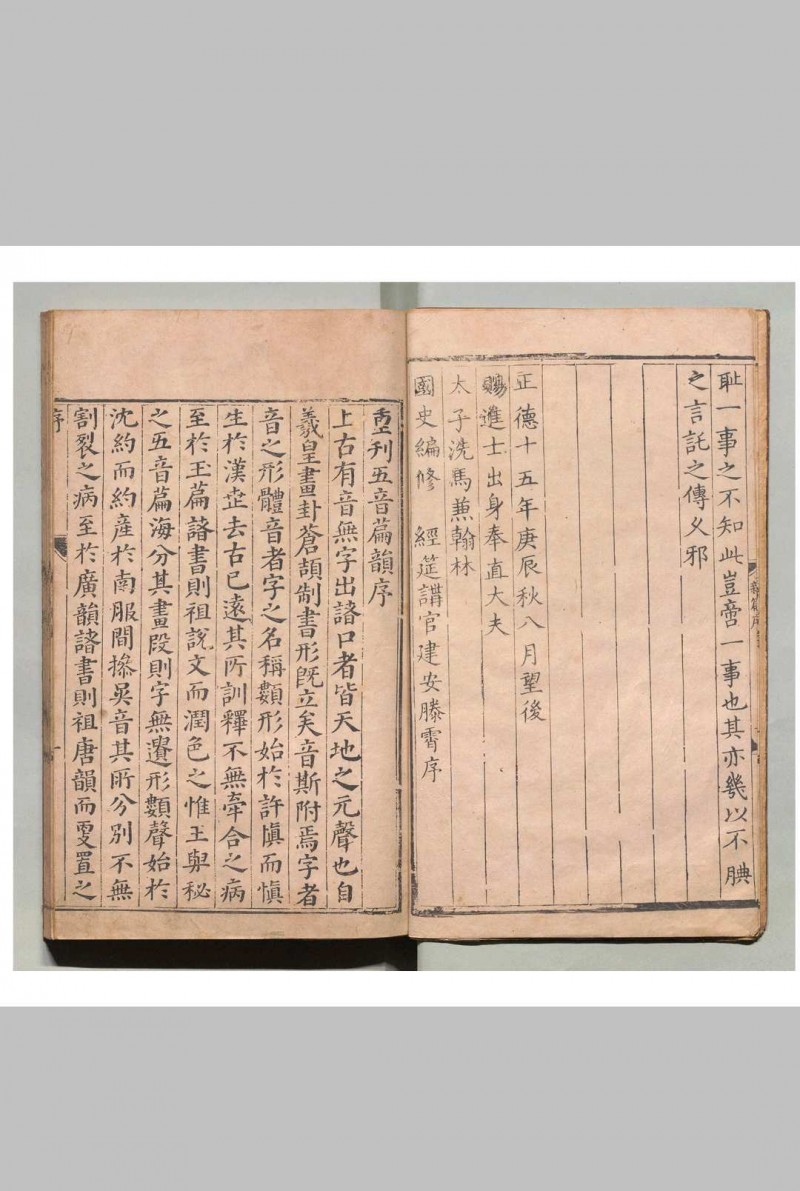 耻一事之不知此豈啻一事也其亦幾以不腆
之言託之傳乆邪
正德十五年庚辰秋八月望後
賜進士出身奉直大夫
太子洗馬兼翰林
國史編修 經筵講官建安滕霄序
重刊五音篇韻序
上古有音無字出諸口者皆天地之元聲也自
羲皇畫卦蒼頡制書形旣立矣音斯附焉字者
音之形體音者字之名稱類形始於許慎而慎
生於漢世去古已遠其所訓釋不無牽合之病
至於玉篇諸書則祖說文而潤色之惟王與秘
之五音篇海分其畫段則字無遺形類聲始於
沈約而約産於南服間摻吳音其所分別不無
割裂之病至於廣韻諸書則祖唐韻而更置之
序